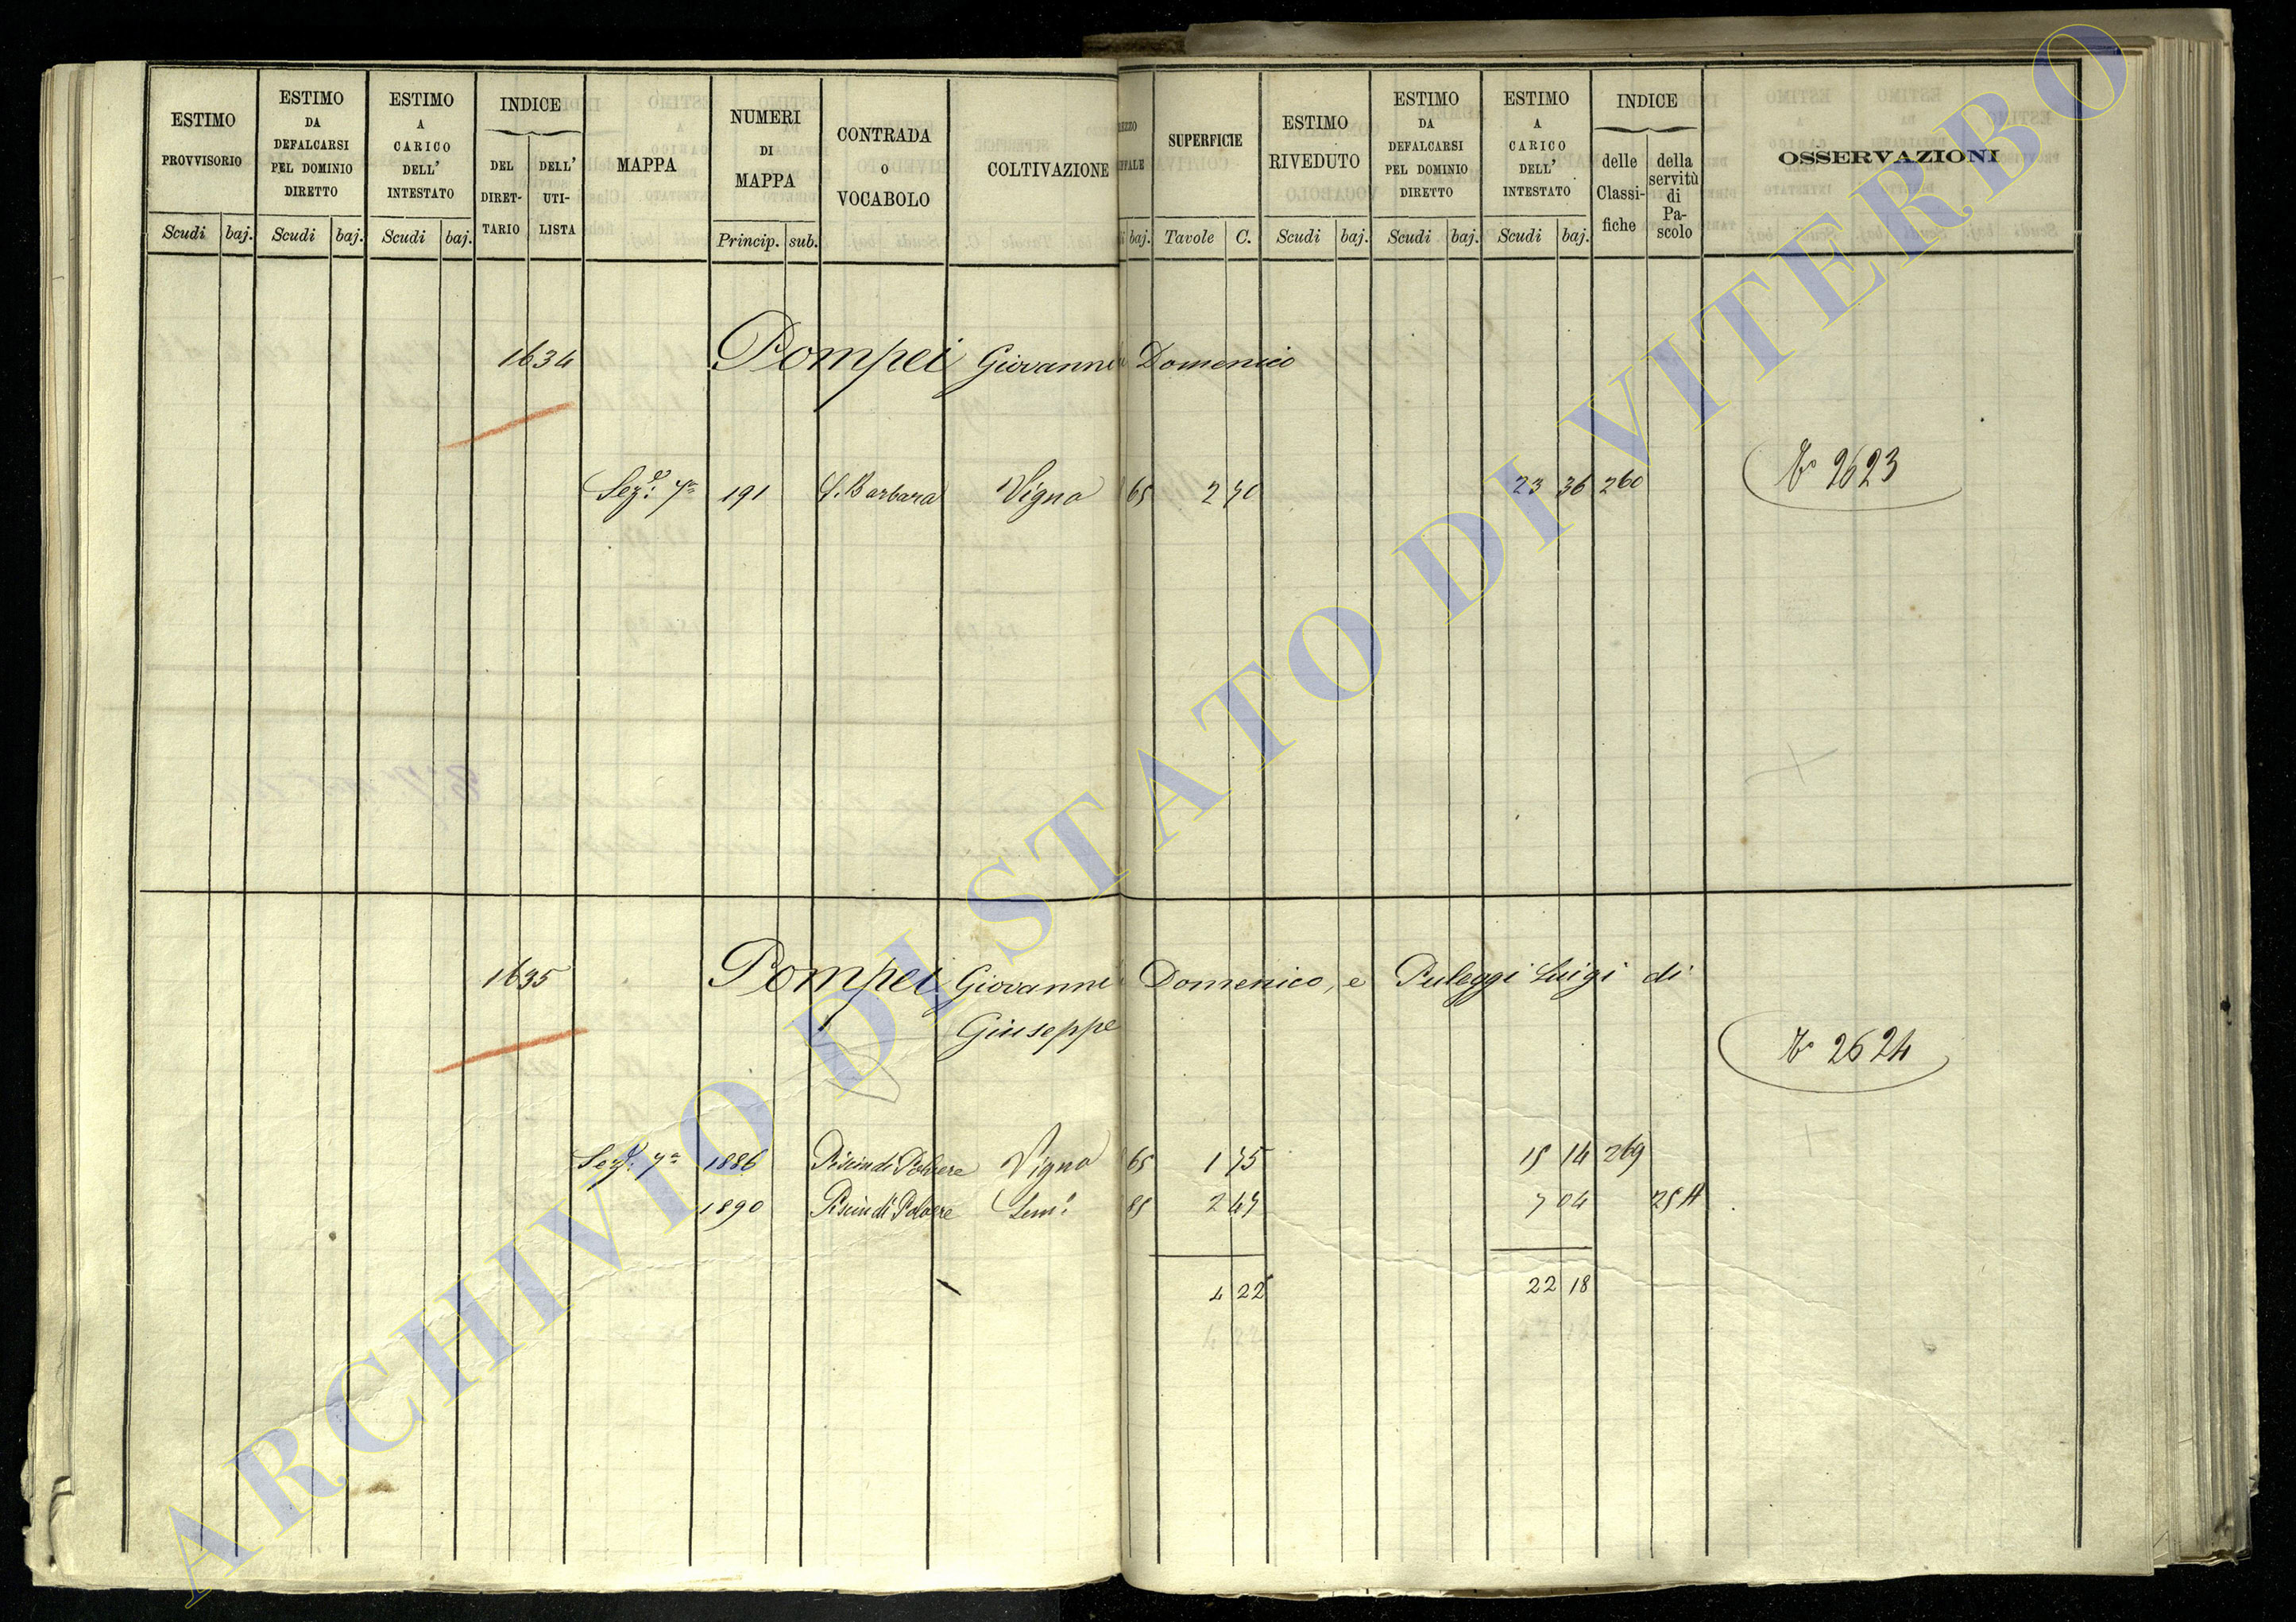 ESTIMO PROVVISORIO
Scudi baj.
ESTIMO DA DEFALCARSI PEL DOMINIO DIRETTO
Scudi baj.
ESTIMO A CARICO DELL' INTESTATO
Scudi baj.
INDICE
DEL DIRET-TARIO
DELL' UTI-LISTA
MAPPA
NUMERI DI MAPPA
Princip. sub.
CONTRADA O VOCABOLO
COLTIVAZIONE
baj.
SUPERFICIE
Tavole C.
ESTIMO RIVEDUTO
Scudi baj.
ESTIMO DA DEFALCARSI PEL DOMINIO DIRETTO
Scudi baj.
ESTIMO A CARICO DELL' INTESTATO
Scudi baj.
INDICE
delle Classi-fiche
della servitù di Pa-scolo
OSSERVAZIONI
1634 Pompei Giovanni Domenico
Sez.e 7a 191 S. Barbara Vigna 65 2 70 23 36 260
2623
1635 Pompei Giovanni Domenico, e Puleggi Luigi di
Giuseppe
2624
Sez.e 7a 1886 Piscin di Polvere Vigna 65 1 75 15 14 269
1890 Piscin di Polvere Sem.o 85 2 47 7 04 25H
4 22 22 18
4 22 22 18
ARCHIVIO DI STATO DI VITERBO